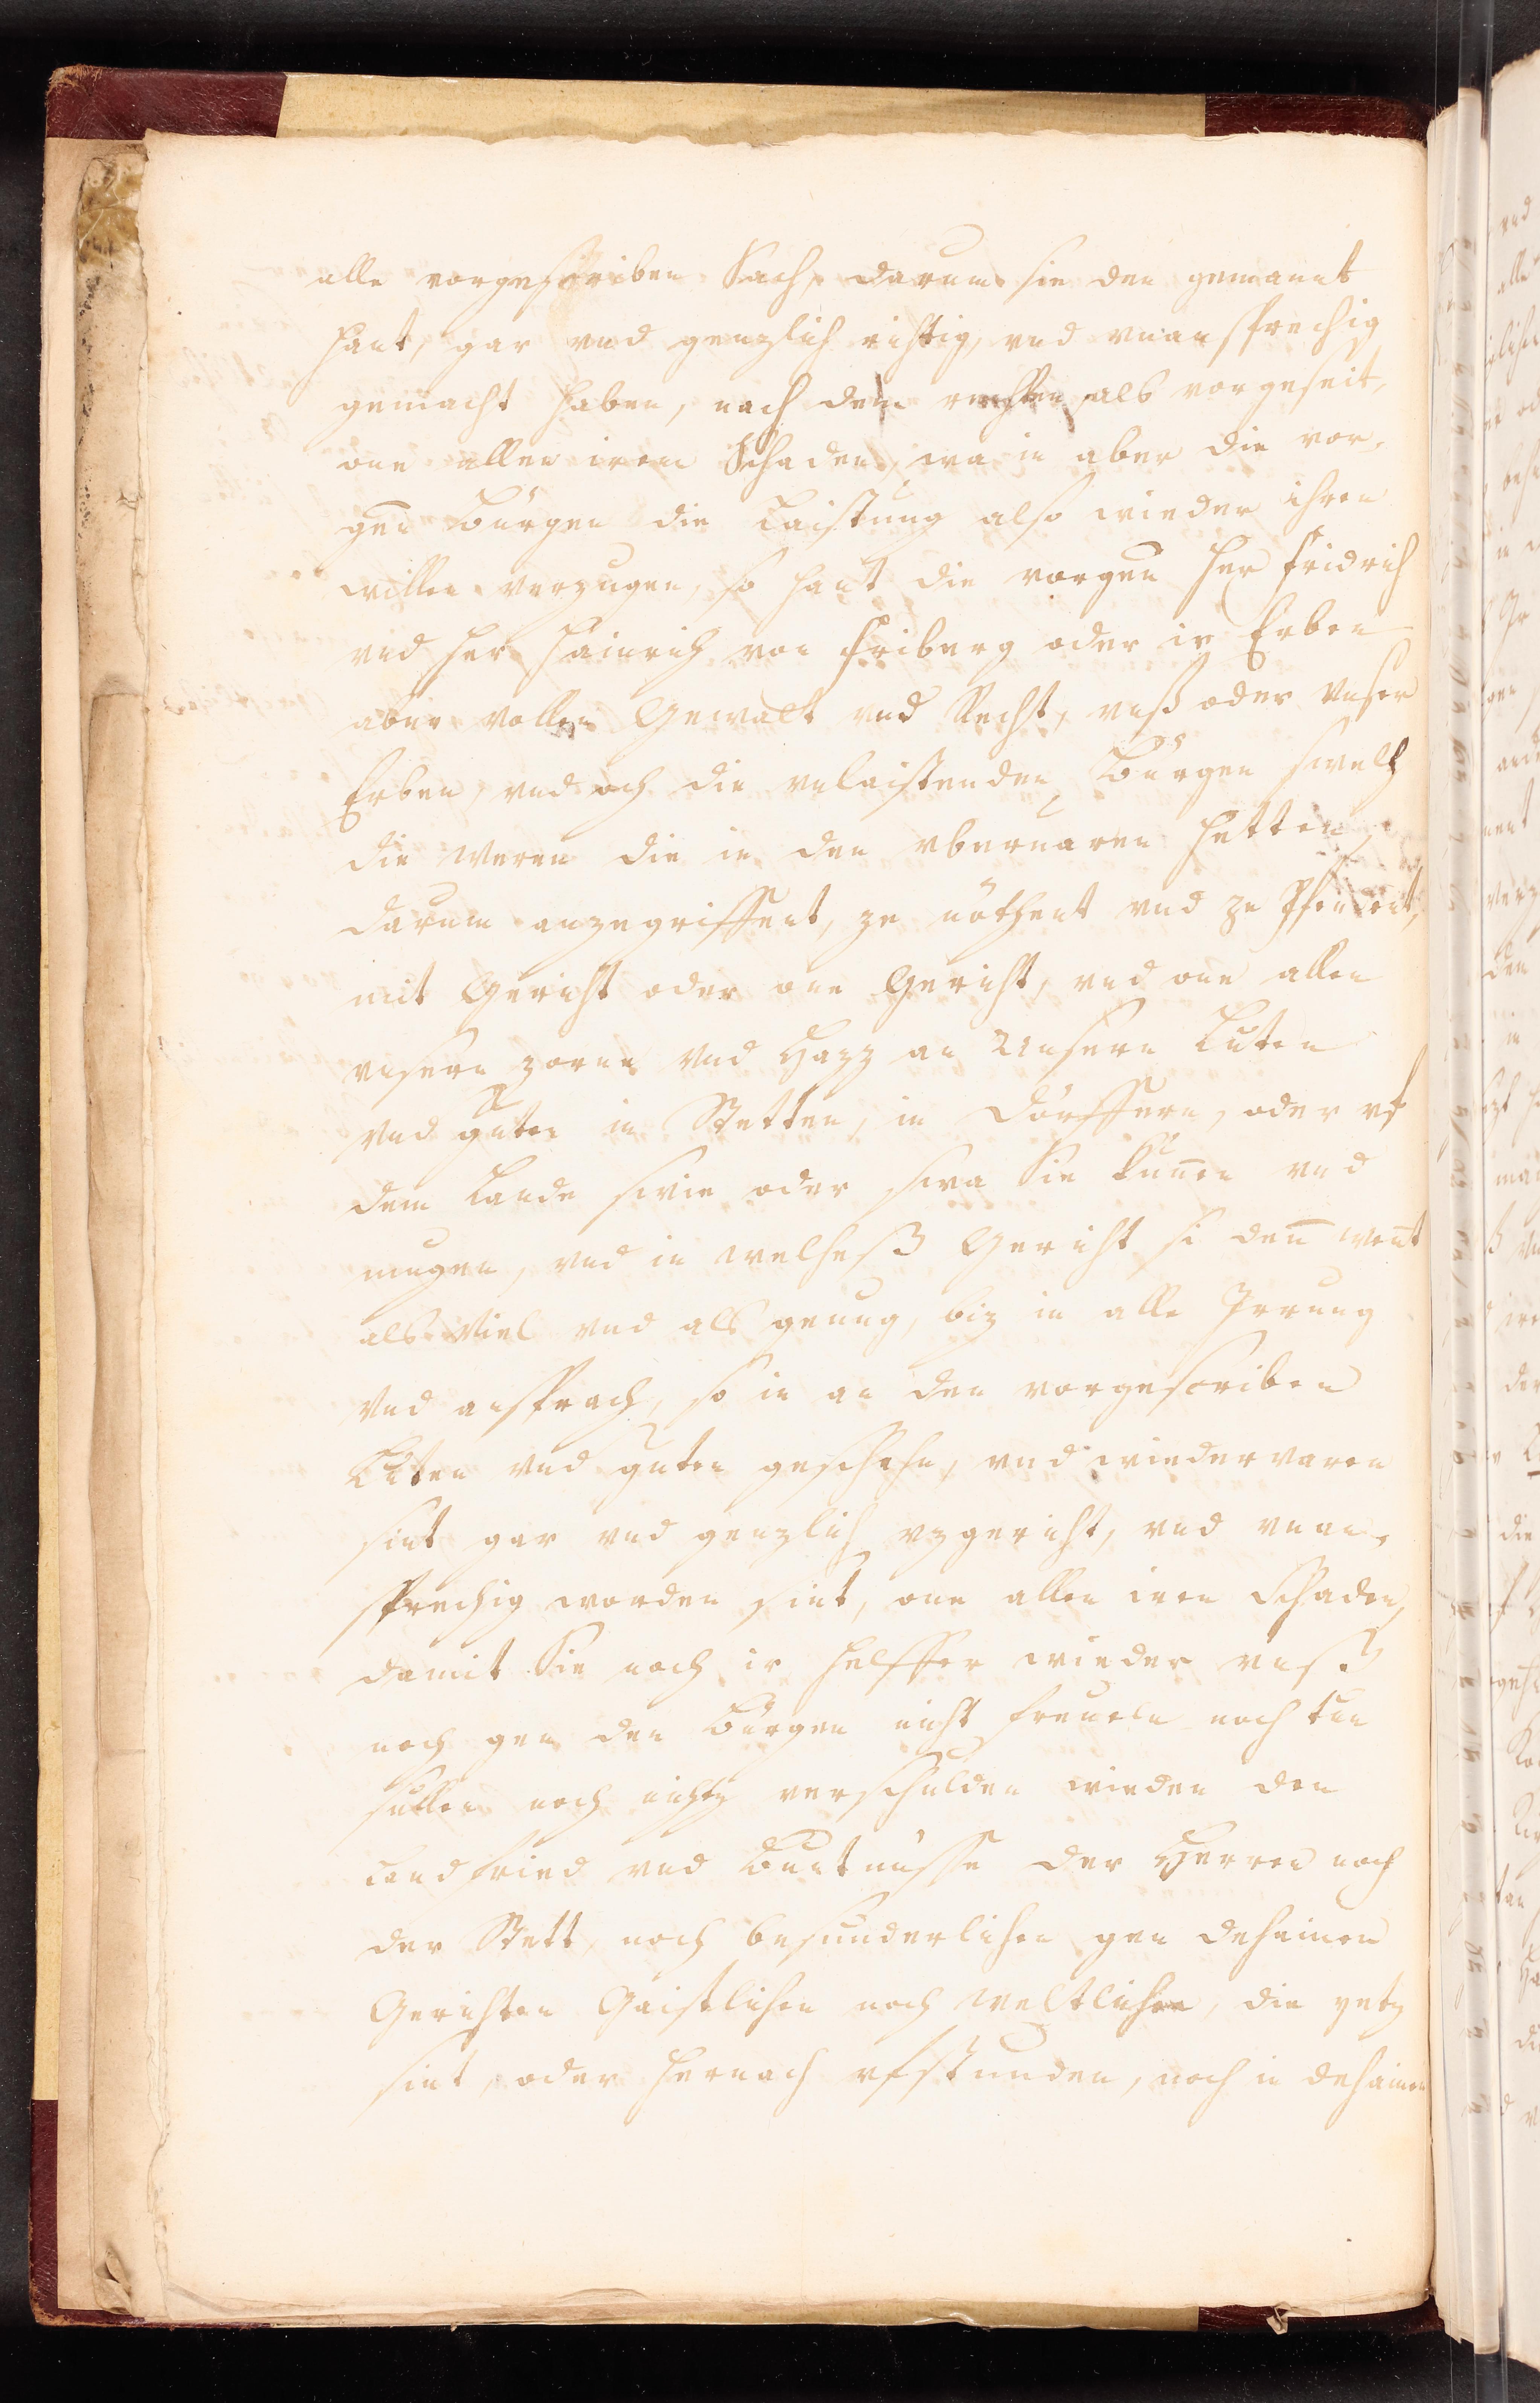 alle vorgeschriben Sach, darum sie den gemannt
hant, gar vnd genzlich richtig, vnd vnansprechig
gemacht haben, nach dem rechten, als vorgeseit,
one allen iren Schaden, wa in aber die vor-
gen Bürgen die Laistung also wieder ihren
willen verzugen, so hant die vorgen Her Fridrich
vnd Her Hainrich von Friberg oder ir Erben
aber vollen Gewalt vnd Recht, vnß oder vnser
Erben, vnd och die vnlaistenden Bürgen swelh
die weren die in den vbervaren hetten,
darum anzegriffent, ze nöthent vnd ze Pfendent,
mit Gericht oder one Gericht, vnd one allen
vnsern zorne vnd Hazz an Unsern Luten
vnd guten in Stetten, in Dörffern, oder vf
dem Lande swie oder swa Sie kunen vnd
mugen, vnd in welheß Gericht si den went
als Viel vnd als genug, biz in alle Irrung
vnd ansprach, so in an den vorgescriben
Luten vnd guten geschehn, vnd wiedervaren
sint gar vnd genzlich vzgericht, vnd vnan-
sprechig worden sint, one allen iren Schaden,
damit Sie noch ir helffer wieder vnß
noch gen den Bürgen nicht freueln noch tun
sullen noch nichtz verschulden wieden den
Landfried vnd Buntnüsse der Herren noch
der Stett, noch besunderlichen gen deheinen
Gerichten Gaistlichen noch weltlichen, die yetz
sint, oder hernach vfstunden, noch in dehainen